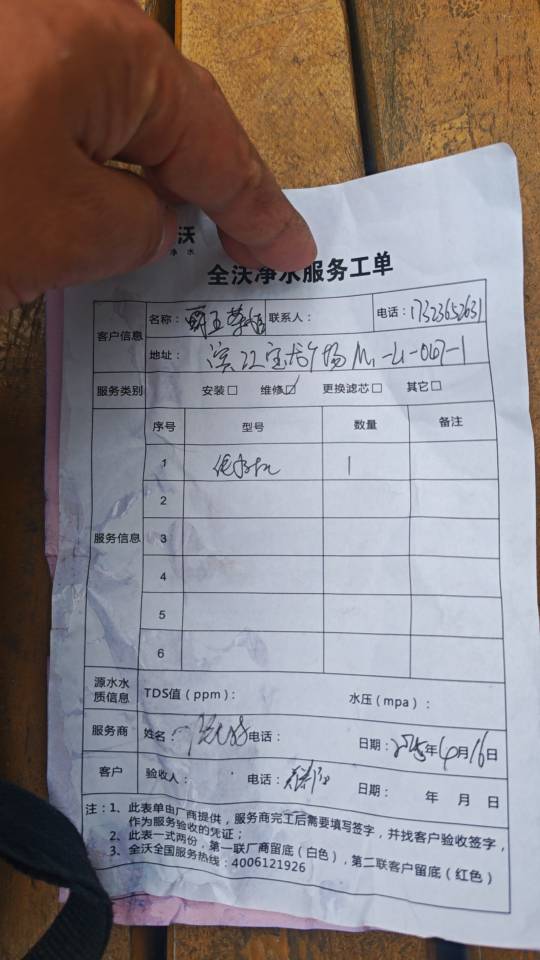 沃
净水
全沃净水服务工单
客户信息 名称：霸王茶姬 联系人： 电话：17323652631
地址：滨江宝龙广场M1-L1-047-1
服务类别 安装□ 维修☑ 更换滤芯□ 其它□
服务信息 序号 型号 数量 备注
1 1
2
3
4
5
6
源水水质信息 TDS值（ppm）： 水压（mpa）：
服务商 姓名： 电话： 日期：2025年4月16日
客户 验收人： 电话： 日期： 年 月 日
注：1、此表单由厂商提供，服务商完工后需要填写签字，并找客户验收签字，
作为服务验收的凭证；
2、此表一式两份，第一联厂商留底（白色），第二联客户留底（红色）
3、全沃全国服务热线：4006121926